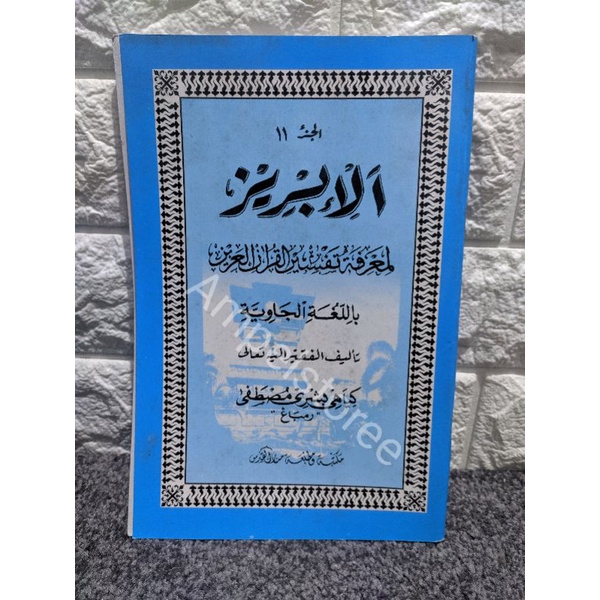 الجزء ١١
اَلْإِبْرِيْز
لِمَعْرِفَةِ تَفْسِيْرِ الْقُرْاٰنِ الْعَزِيْزِ
بِاللُّغَةِ الْجَاوِيَّةِ
تأليف الفقير اليه تعالى
كياهي بشرى مصطفى
"رمباغ"
مكتبة ومطبعة منارا قدس
Ampelstoree